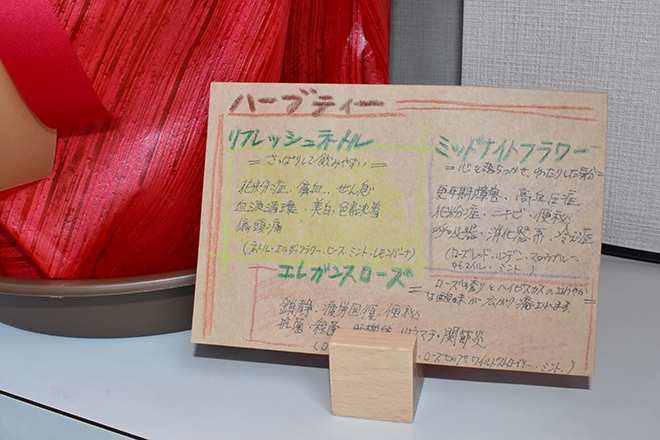 ハーブティー
リフレッシュネトル
＝さっぱりして飲みやすい＝
花粉症、貧血、ぜん息
血液循環・美白・色素沈着
偏頭痛
(ネトル・エルダーフラワー・ヒース・ミント・レモンバーム)
ミッドナイトフラワー
＝心を落ちつかせ、ゆったりした気分＝
更年期障害、高血圧症
花粉症・ニキビ・便秘
呼吸器・消化器系・冷え症
(ローズレッド・リンデン・マロウブルー・
カモマイル・ミント.)
エレガンスローズ
ローズの香りとハイビスカスの
な酸味が広がり
鎮静・疲労回復・便秘
抗菌・殺菌・リウマチ・関節炎
・ローズヒップ・ワイルドストロベリー・ミント.)